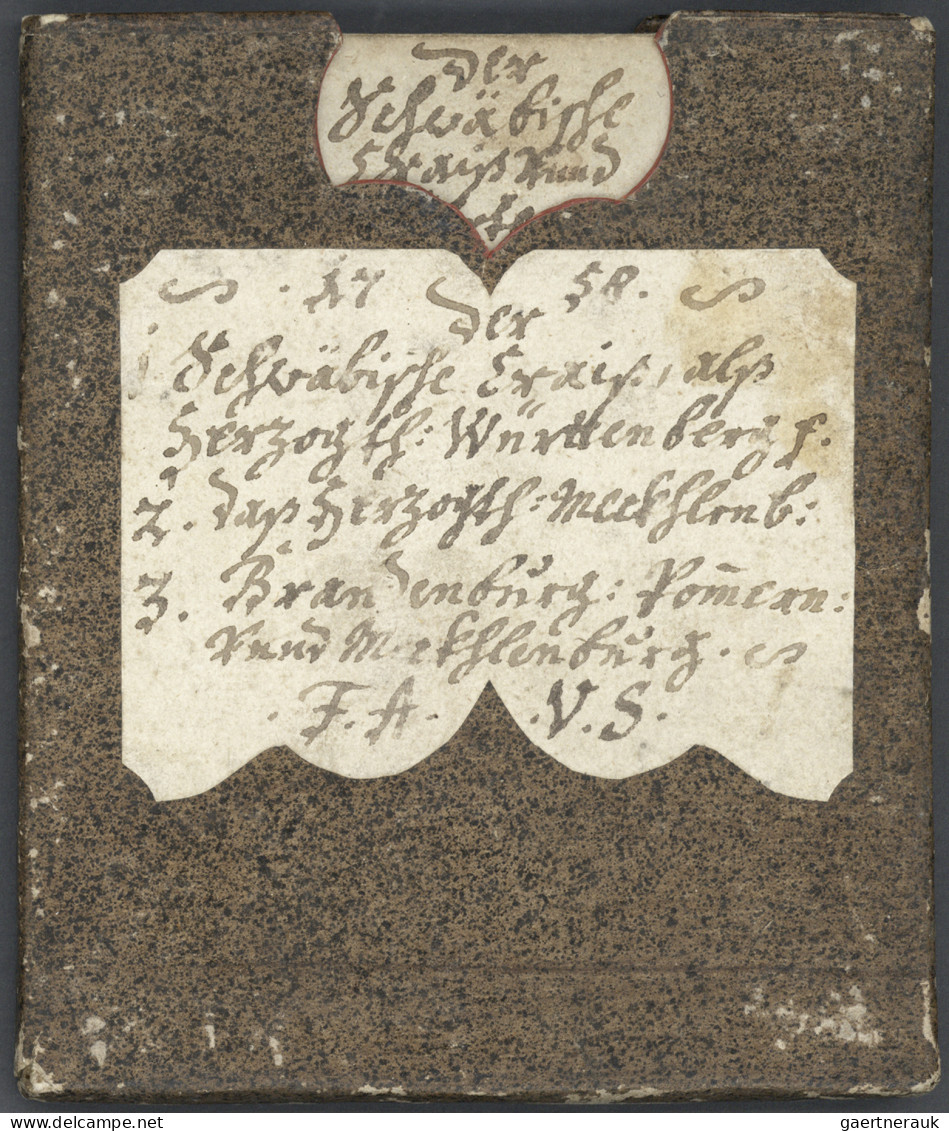 Der
Schwäbische
Craiß Vnnd
17 58.
Der
Schwäbische Craiß, alß
Herzogth: Württenberg
2. daß Herzogth: Meckhlenb:
3. Brandenburg: Pom̅ern:
Vnnd Meckhlenburg.
F. A. V. S.
www.delcampe.net
gaertnerauk